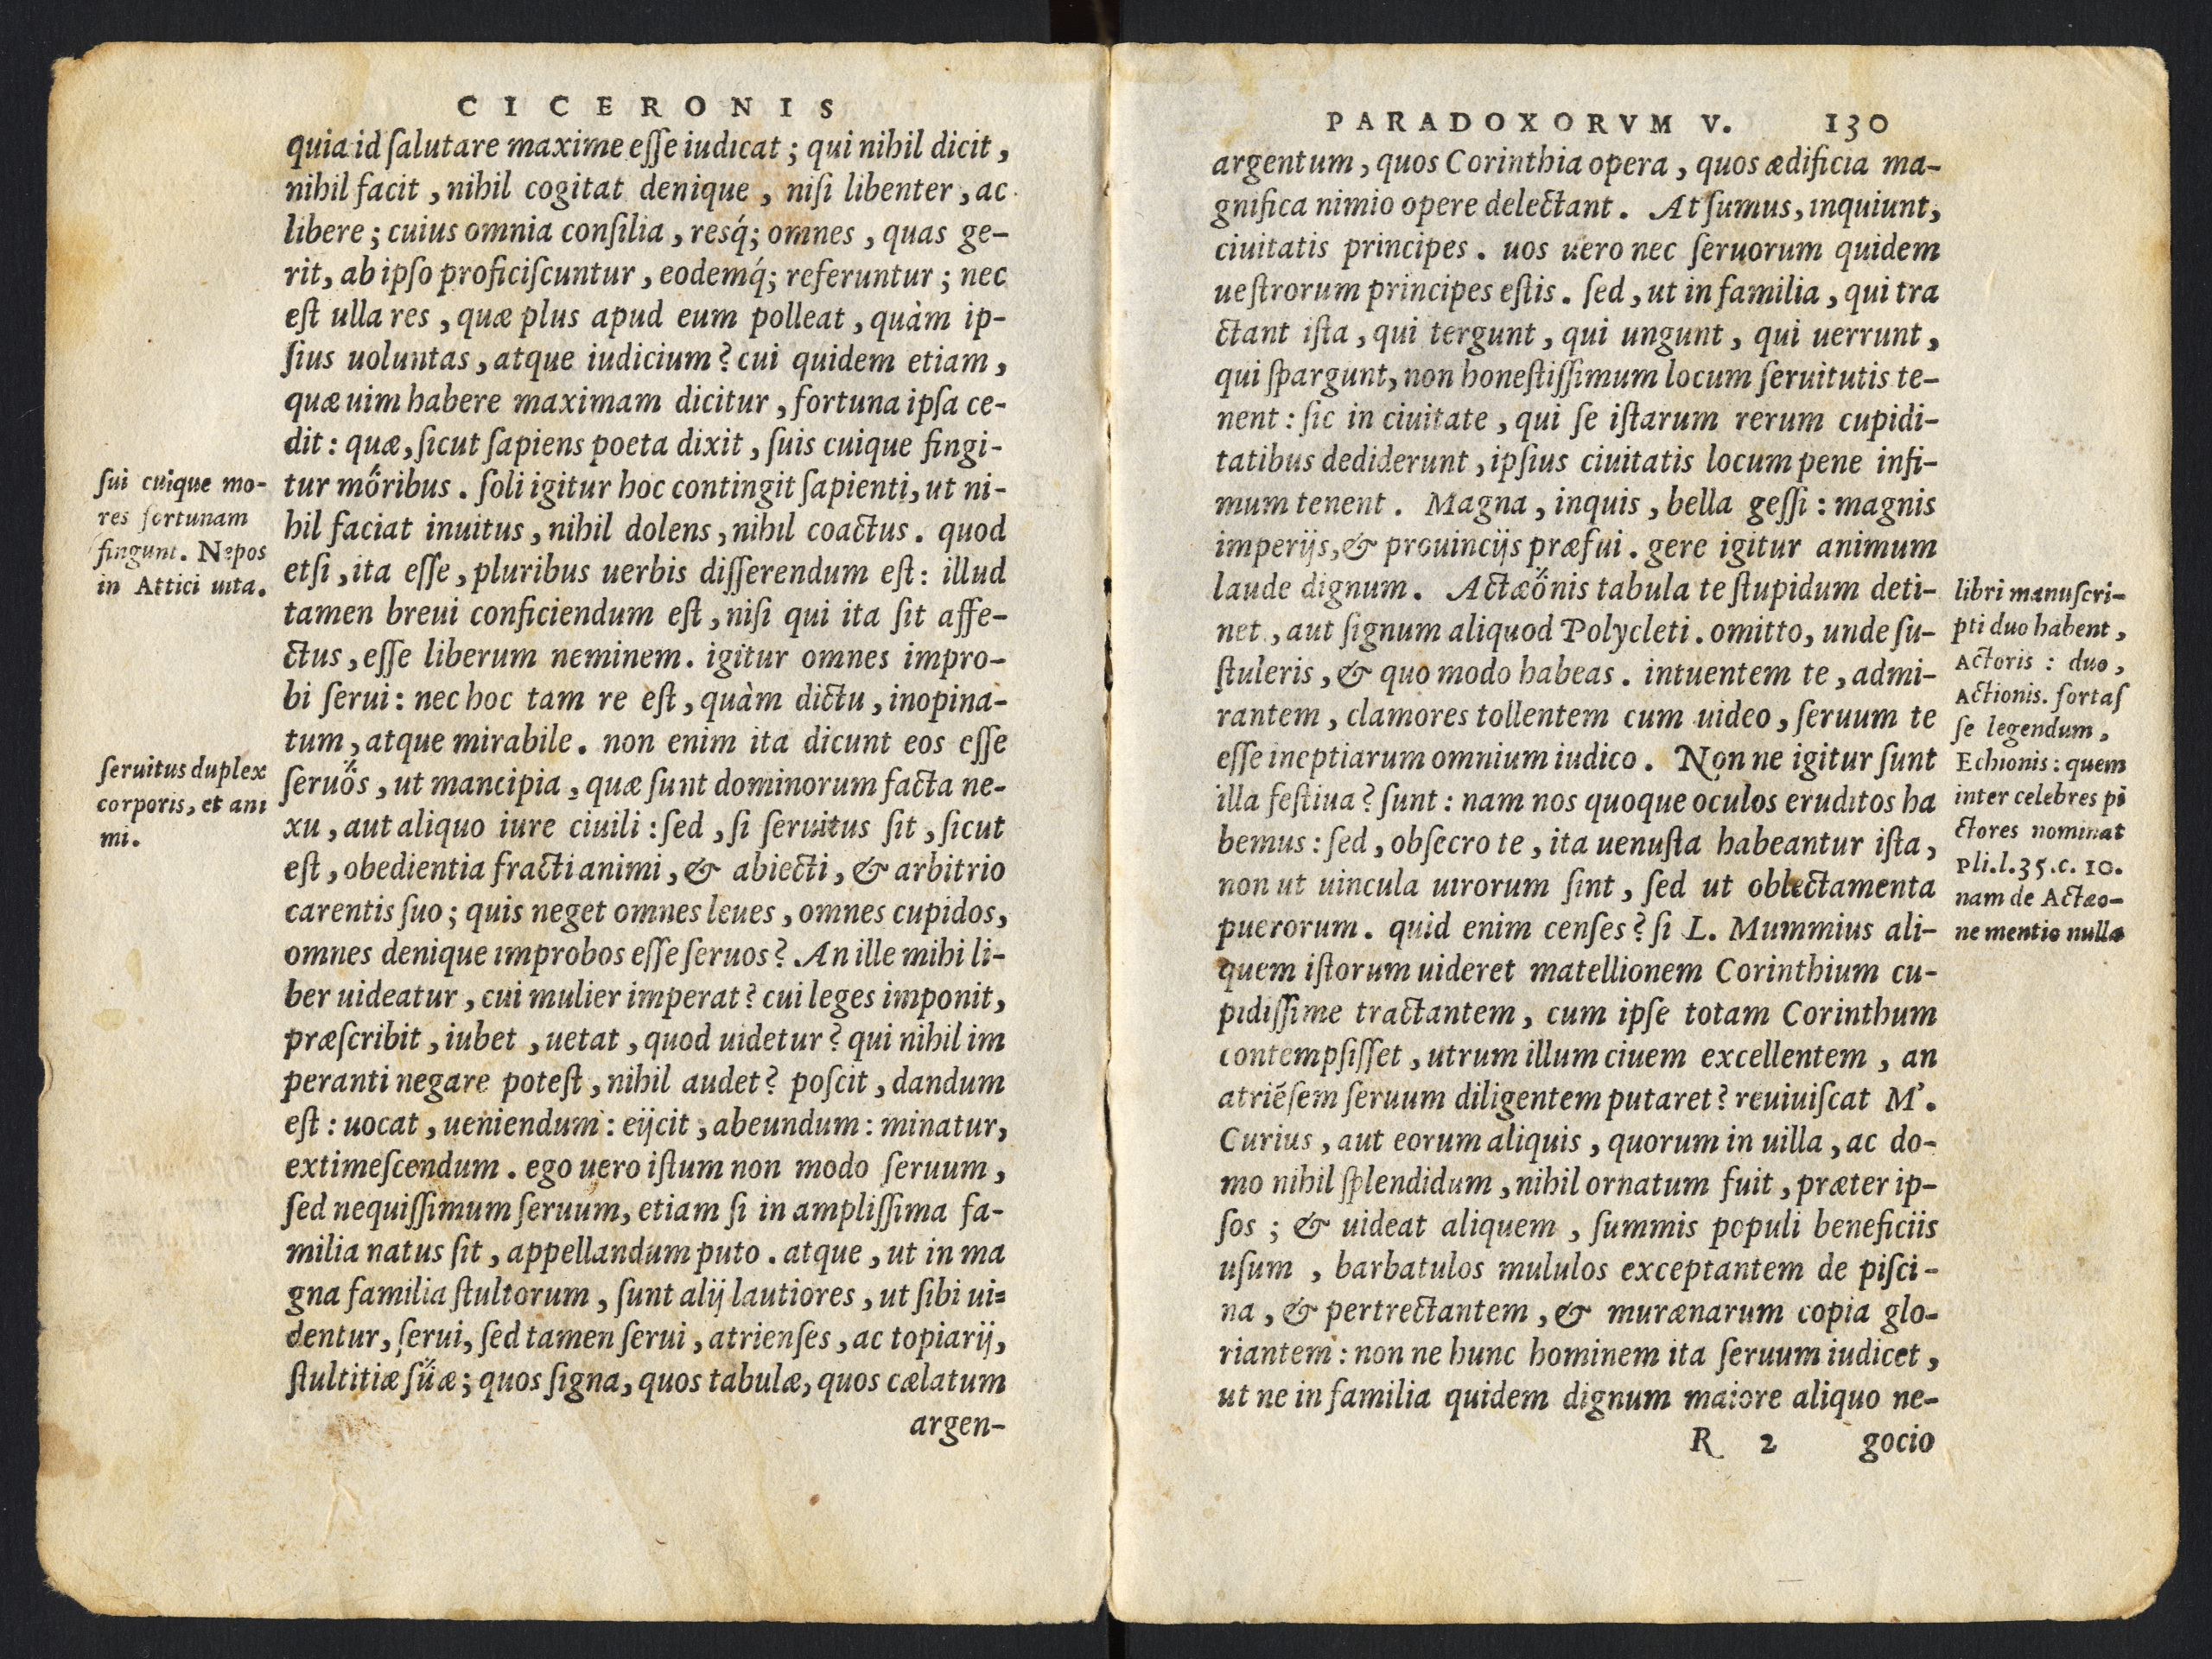 CICERONIS
quia id ſalutare maxime eſſe iudicat; qui nihil dicit,
nihil facit, nihil cogitat denique, niſi libenter, ac
libere; cuius omnia conſilia, resq́; omnes, quas ge-
rit, ab ipſo proficiſcuntur, eodemq́; referuntur; nec
eſt ulla res, quæ plus apud eum polleat, quàm ip-
ſius uoluntas, atque iudicium? cui quidem etiam,
quæ uim habere maximam dicitur, fortuna ipſa ce-
dit: quæ, ſicut ſapiens poeta dixit, ſuis cuique fingi-
tur moribus. ſoli igitur hoc contingit ſapienti, ut ni-
hil faciat inuitus, nihil dolens, nihil coactus. quod
etſi, ita eſſe, pluribus uerbis diſſerendum eſt: illud
tamen breui conficiendum eſt, niſi qui ita ſit affe-
ctus, eſſe liberum neminem. igitur omnes impro-
bi ſerui: nec hoc tam re eſt, quàm dictu, inopina-
tum, atque mirabile. non enim ita dicunt eos eſſe
ſeruos, ut mancipia, quæ ſunt dominorum facta ne-
xu, aut aliquo iure ciuili: ſed, ſi ſeruitus ſit, ſicut
eſt, obedientia fracti animi, & abiecti, & arbitrio
carentis ſuo; quis neget omnes leues, omnes cupidos,
omnes denique improbos eſſe ſeruos? An ille mihi li-
ber uideatur, cui mulier imperat? cui leges imponit,
præſcribit, iubet, uetat, quod uidetur? qui nihil im
peranti negare poteſt, nihil audet? poſcit, dandum
eſt: uocat, ueniendum: eijcit, abeundum: minatur,
extimeſcendum. ego uero iſtum non modo ſeruum,
ſed nequiſſimum ſeruum, etiam ſi in ampliſſima fa-
milia natus ſit, appellandum puto. atque, ut in ma
gna familia ſtultorum, ſunt alij lautiores, ut ſibi ui=
dentur, ſerui, ſed tamen ſerui, atrienſes, ac topiarij,
ſtultitiæ ſuæ; quos ſigna, quos tabulæ, quos cælatum
argen-
ſui cuique mo-
res fortunam
fingunt. Nepos
in Attici uita.
ſeruitus duplex
corporis, et ani
mi.
PARADOXORVM V. 130
argentum, quos Corinthia opera, quos ædificia ma-
gnifica nimio opere delectant. At ſumus, inquiunt,
ciuitatis principes. uos uero nec ſeruorum quidem
ueſtrorum principes eſtis. ſed, ut in familia, qui tra
ctant iſta, qui tergunt, qui ungunt, qui uerrunt,
qui ſpargunt, non honeſtiſſimum locum ſeruitutis te-
nent: ſic in ciuitate, qui ſe iſtarum rerum cupidi-
tatibus dediderunt, ipſius ciuitatis locum pene infi-
mum tenent. Magna, inquis, bella geſſi: magnis
imperijs, & prouincijs præfui. gere igitur animum
laude dignum. Actæonis tabula te ſtupidum deti-
net, aut ſignum aliquod Polycleti. omitto, unde ſu-
ſtuleris, & quo modo habeas. intuentem te, admi-
rantem, clamores tollentem cum uideo, ſeruum te
eſſe ineptiarum omnium iudico. Non ne igitur ſunt
illa feſtiua? ſunt: nam nos quoque oculos eruditos ha
bemus: ſed, obſecro te, ita uenuſta habeantur iſta,
non ut uincula uirorum ſint, ſed ut oblectamenta
puerorum. quid enim cenſes? ſi L. Mummius ali-
quem iſtorum uideret matellionem Corinthium cu-
pidiſſime tractantem, cum ipſe totam Corinthum
contempſiſſet, utrum illum ciuem excellentem, an
atriẽſem ſeruum diligentem putaret? reuiuiſcat M'.
Curius, aut eorum aliquis, quorum in uilla, ac do-
mo nihil ſplendidum, nihil ornatum fuit, præter ip-
ſos; & uideat aliquem, ſummis populi beneficiis
uſum, barbatulos mululos exceptantem de piſci-
na, & pertrectantem, & murænarum copia glo-
riantem: non ne hunc hominem ita ſeruum iudicet,
ut ne in familia quidem dignum maiore aliquo ne-
R 2 gocio
libri manuſcri-
pti duo habent,
Actoris: duo,
Actionis. fortaſ
ſe legendum,
Echionis: quem
inter celebres pi
ctores nominat
Pli.l.35.c. 10.
nam de Actæo-
ne mentio nulla